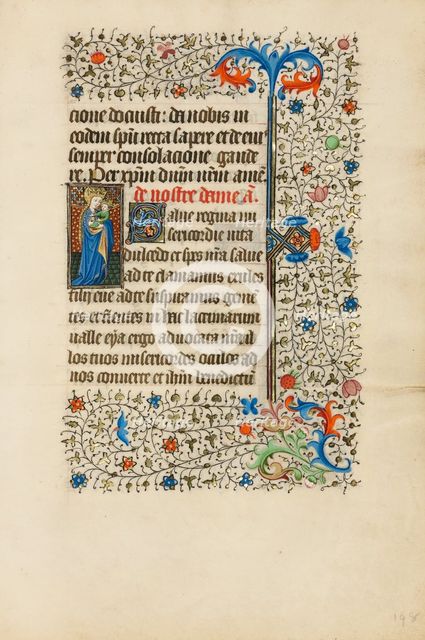 cione docuisti: da nobis in
eodem spũ recta sapere et de eiꝰ
semper consolacione gaude
re. Per xpm dnm nrm amē
de nostre dame ā.
Salue regina mi
sericordie uita
dulcedo et spes nrã salue
ad te clamamus exules
filij eue ad te suspiramus gemē
tes et flentes in hac lacrimarum
ualle eya ergo aduocata nrã il
los tuos misericordes oculos ad
nos conuerte et ihm benedictū
198